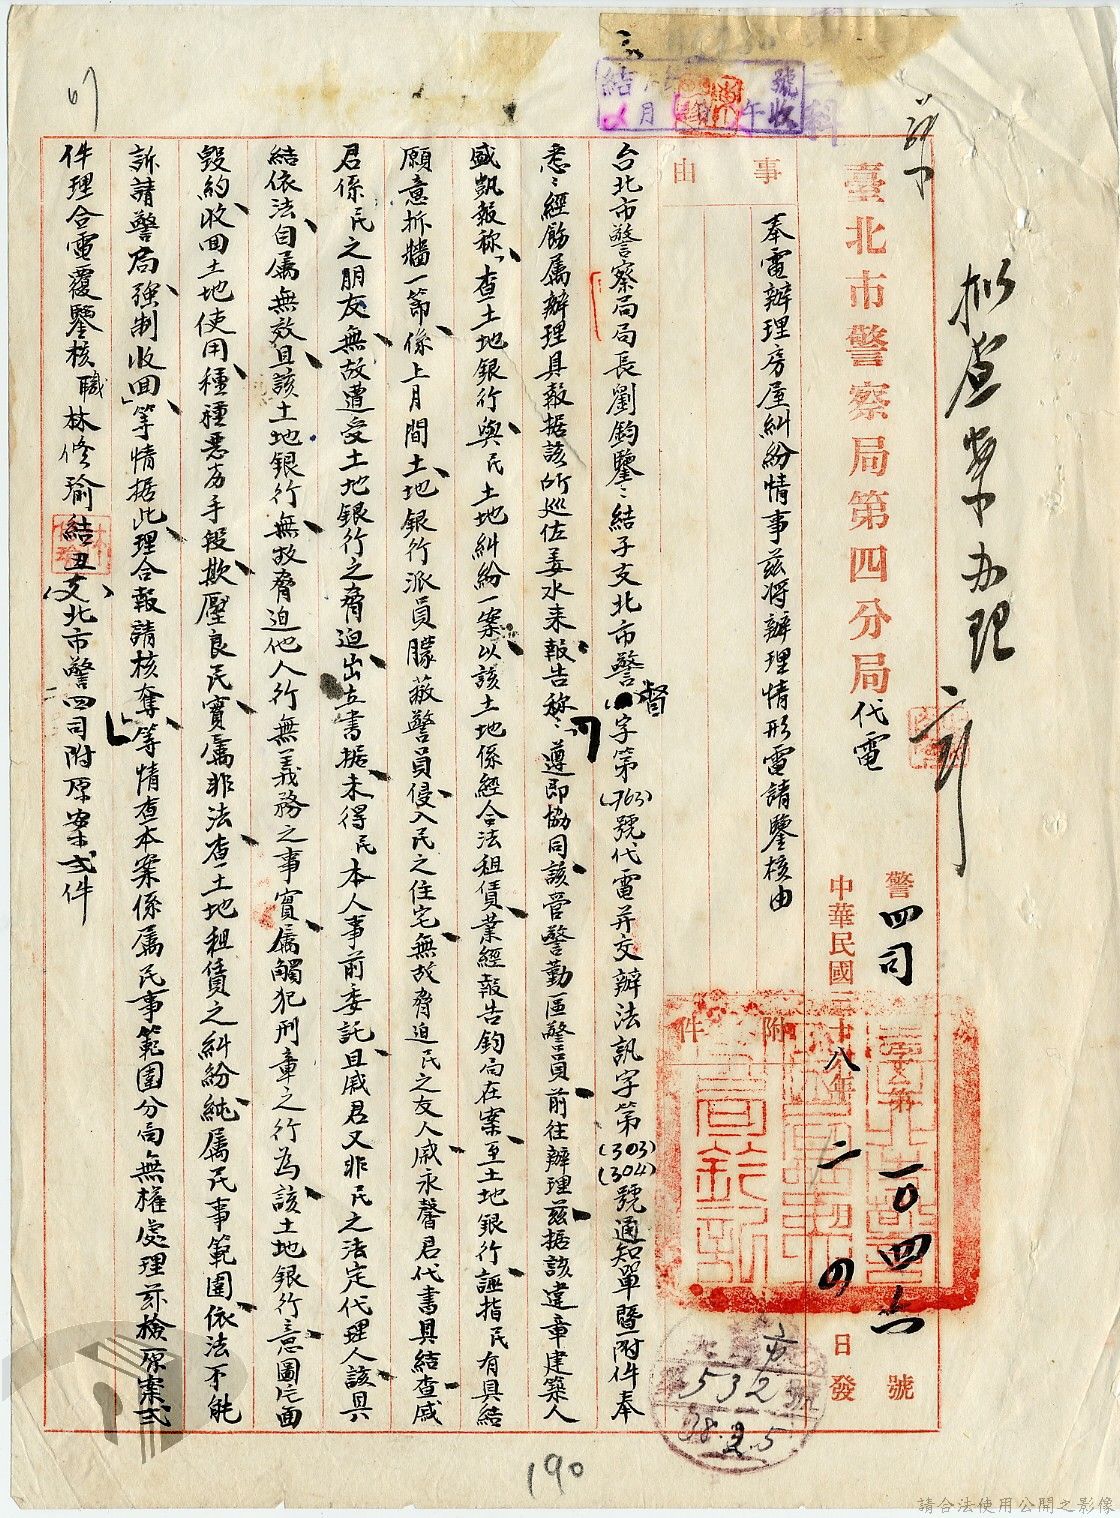 擬查案办理
臺北市警察局第四分局代電
警四司字第一0四六號
中華民國三十八年二月四日發
事由
奉電辦理房屋糾紛情事茲将辦理情形電請鑒核由
附件
台北市警察局局長劉鈞鑒:結子支北市警督字第(763)號代電并交辦法訊字第(303)(304)號通知單暨附件奉
悉:經飭属辦理具報据該所巡佐姜水来報告称:「遵即協同該管警勤區警員前往辦理茲据該違章建築人
盛凱報称、查土地銀行與民土地糾紛一案以該土地係經合法租賃業經報告鈞局在案至土地銀行誣指民有具結
願意拆牆一節係上月間土地銀行派員朦蔽警員侵入民之住宅無故脅迫民之友人戚永馨君代書具結查戚
君係民之朋友無故遭受土地銀行之脅迫出立書据未得民本人事前委託且戚君又非民之法定代理人該具
結依法自属無效且該土地銀行無故脅迫他人行無義務之事實属觸犯刑章之行為該土地銀行意圖片面
毀約收回土地使用種種惡劣手段欺壓良民實属非法查土地租賃之糾紛純属民事範圍依法不能
訴請警局強制收回」等情据此理合報請核奪」等情查本案係属民事範圍分局無權處理茲檢原案弍
件理合電覆鑒核職林修瑜結丑支北市警四司附原案弍件
號收
月 午
三科
市
532 號
38.2.5
190
請合法使用公開之影像